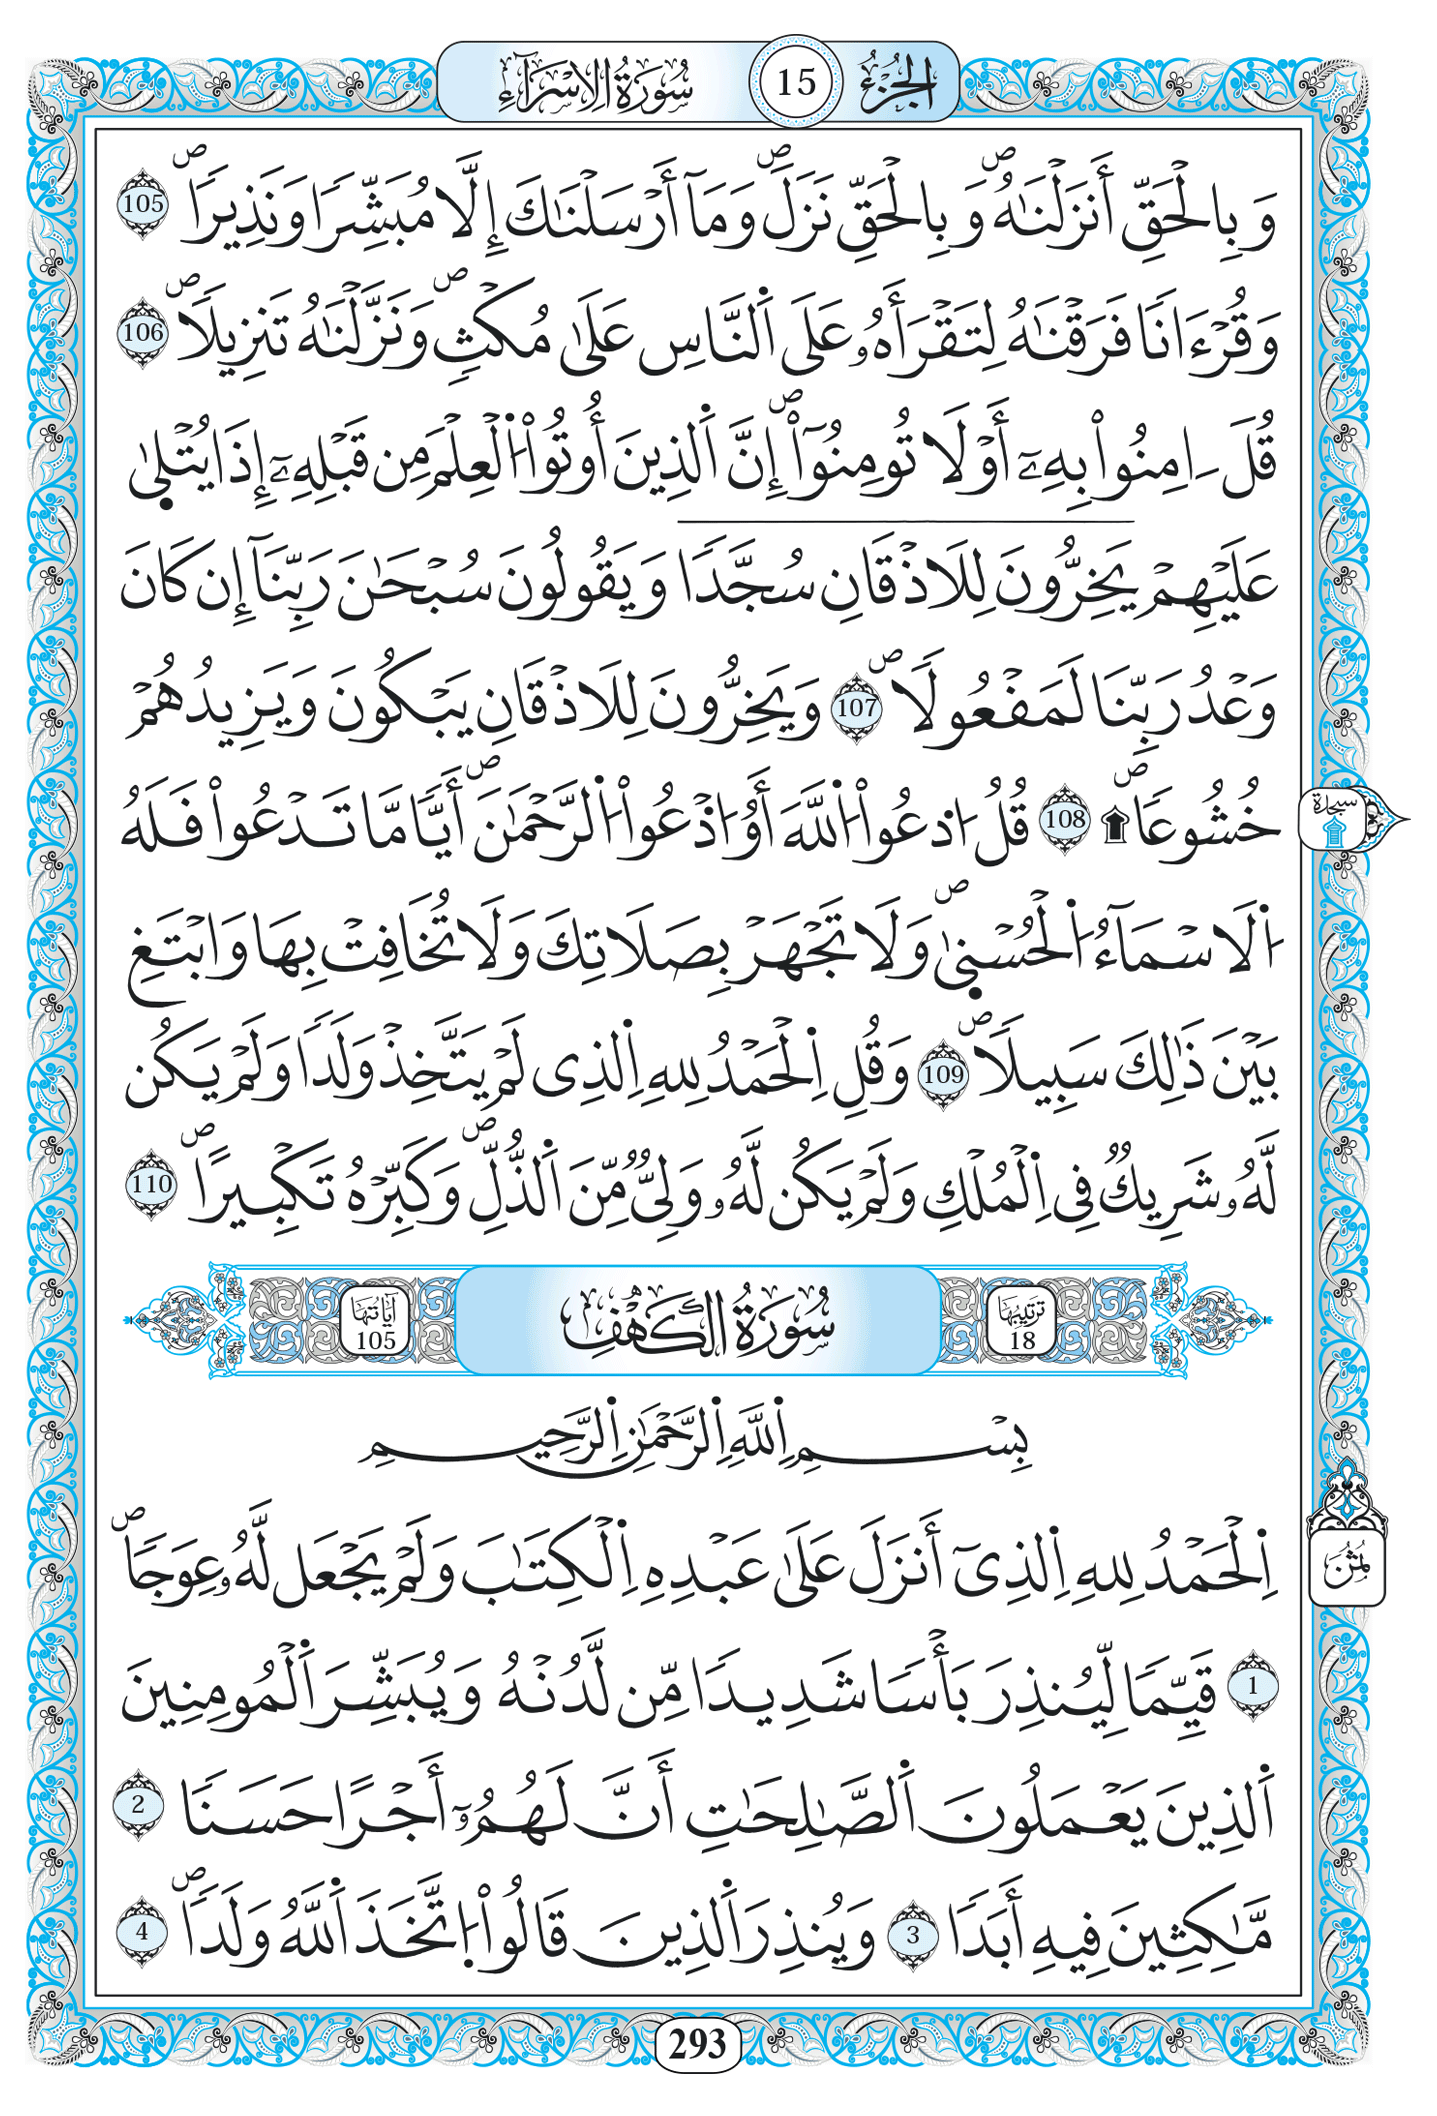 الجزء 15 سورة الإسراء
وَبِالْحَقِّ أَنزَلْنَٰهُ ۖ وَبِالْحَقِّ نَزَلَ ۖ وَمَآ أَرْسَلْنَٰكَ إِلَّا مُبَشِّرٗا وَنَذِيرٗا ۖ 105
وَقُرْءَانٗا فَرَقْنَٰهُ لِتَقْرَأَهُۥ عَلَى اَ۬لنَّاسِ عَلَىٰ مُكْثٖ ۖ وَنَزَّلْنَٰهُ تَنزِيلًا ۖ 106
قُلَ اٰمِنُواْ بِهِۦٓ أَوْ لَا تُومِنُوٓاْ ۖ إِنَّ اَ۬لذِينَ أُوتُواْ اُ۬لْعِلْمَ مِن قَبْلِهِۦٓ إِذَا يُتْلَىٰ
عَلَيْهِمْ يَخِرُّونَ لِلَاذْقَانِ سُجَّدٗا وَيَقُولُونَ سُبْحَٰنَ رَبِّنَآ إِن كَانَ
وَعْدُ رَبِّنَا لَمَفْعُولًا ۖ 107 وَيَخِرُّونَ لِلَاذْقَانِ يَبْكُونَ وَيَزِيدُهُمْ
خُشُوعٗا ۖ ۩ 108 قُلُ اُ۟دْعُواْ اُ۬للَّهَ أَوُ اُ۟دْعُواْ اُ۬لرَّحْمَٰنَ ۖ أَيّٗا مَّا تَدْعُواْ فَلَهُ
اُ۬لَاسْمَآءُ اُ۬لْحُسْنَىٰ ۖ وَلَا تَجْهَرْ بِصَلَاتِكَ وَلَا تُخَافِتْ بِهَا وَابْتَغِ
بَيْنَ ذَٰلِكَ سَبِيلًا ۖ 109 وَقُلِ اِ۬لْحَمْدُ لِلهِ اِ۬لذِى لَمْ يَتَّخِذْ وَلَدٗا وَلَمْ يَكُن
لَّهُۥ شَرِيكٞ فِى اِ۬لْمُلْكِ وَلَمْ يَكُن لَّهُۥ وَلِىّٞ مِّنَ اَ۬لذُّلِّ ۖ وَكَبِّرْهُ تَكْبِيرًا ۖ 110
ترتيبها 18 سورة الكهف آياتها 105
بِسْمِ اِ۬للَّهِ اِ۬لرَّحْمَٰنِ اِ۬لرَّحِيمِ
اِ۬لْحَمْدُ لِلهِ اِ۬لذِىٓ أَنزَلَ عَلَىٰ عَبْدِهِ اِ۬لْكِتَٰبَ وَلَمْ يَجْعَل لَّهُۥ عِوَجٗا ۖ
1 قَيِّمٗا لِّيُنذِرَ بَأْسٗا شَدِيدٗا مِّن لَّدُنْهُ وَيُبَشِّرَ اَ۬لْمُومِنِينَ
اَ۬لذِينَ يَعْمَلُونَ اَ۬لصَّٰلِحَٰتِ أَنَّ لَهُمُۥٓ أَجْرًا حَسَنٗا 2
مَّٰكِثِينَ فِيهِ أَبَدٗا 3 وَيُنذِرَ اَ۬لذِينَ قَالُواْ اُ۪تَّخَذَ اَ۬للَّهُ وَلَدٗا ۖ 4
سجدة
ثمن
293